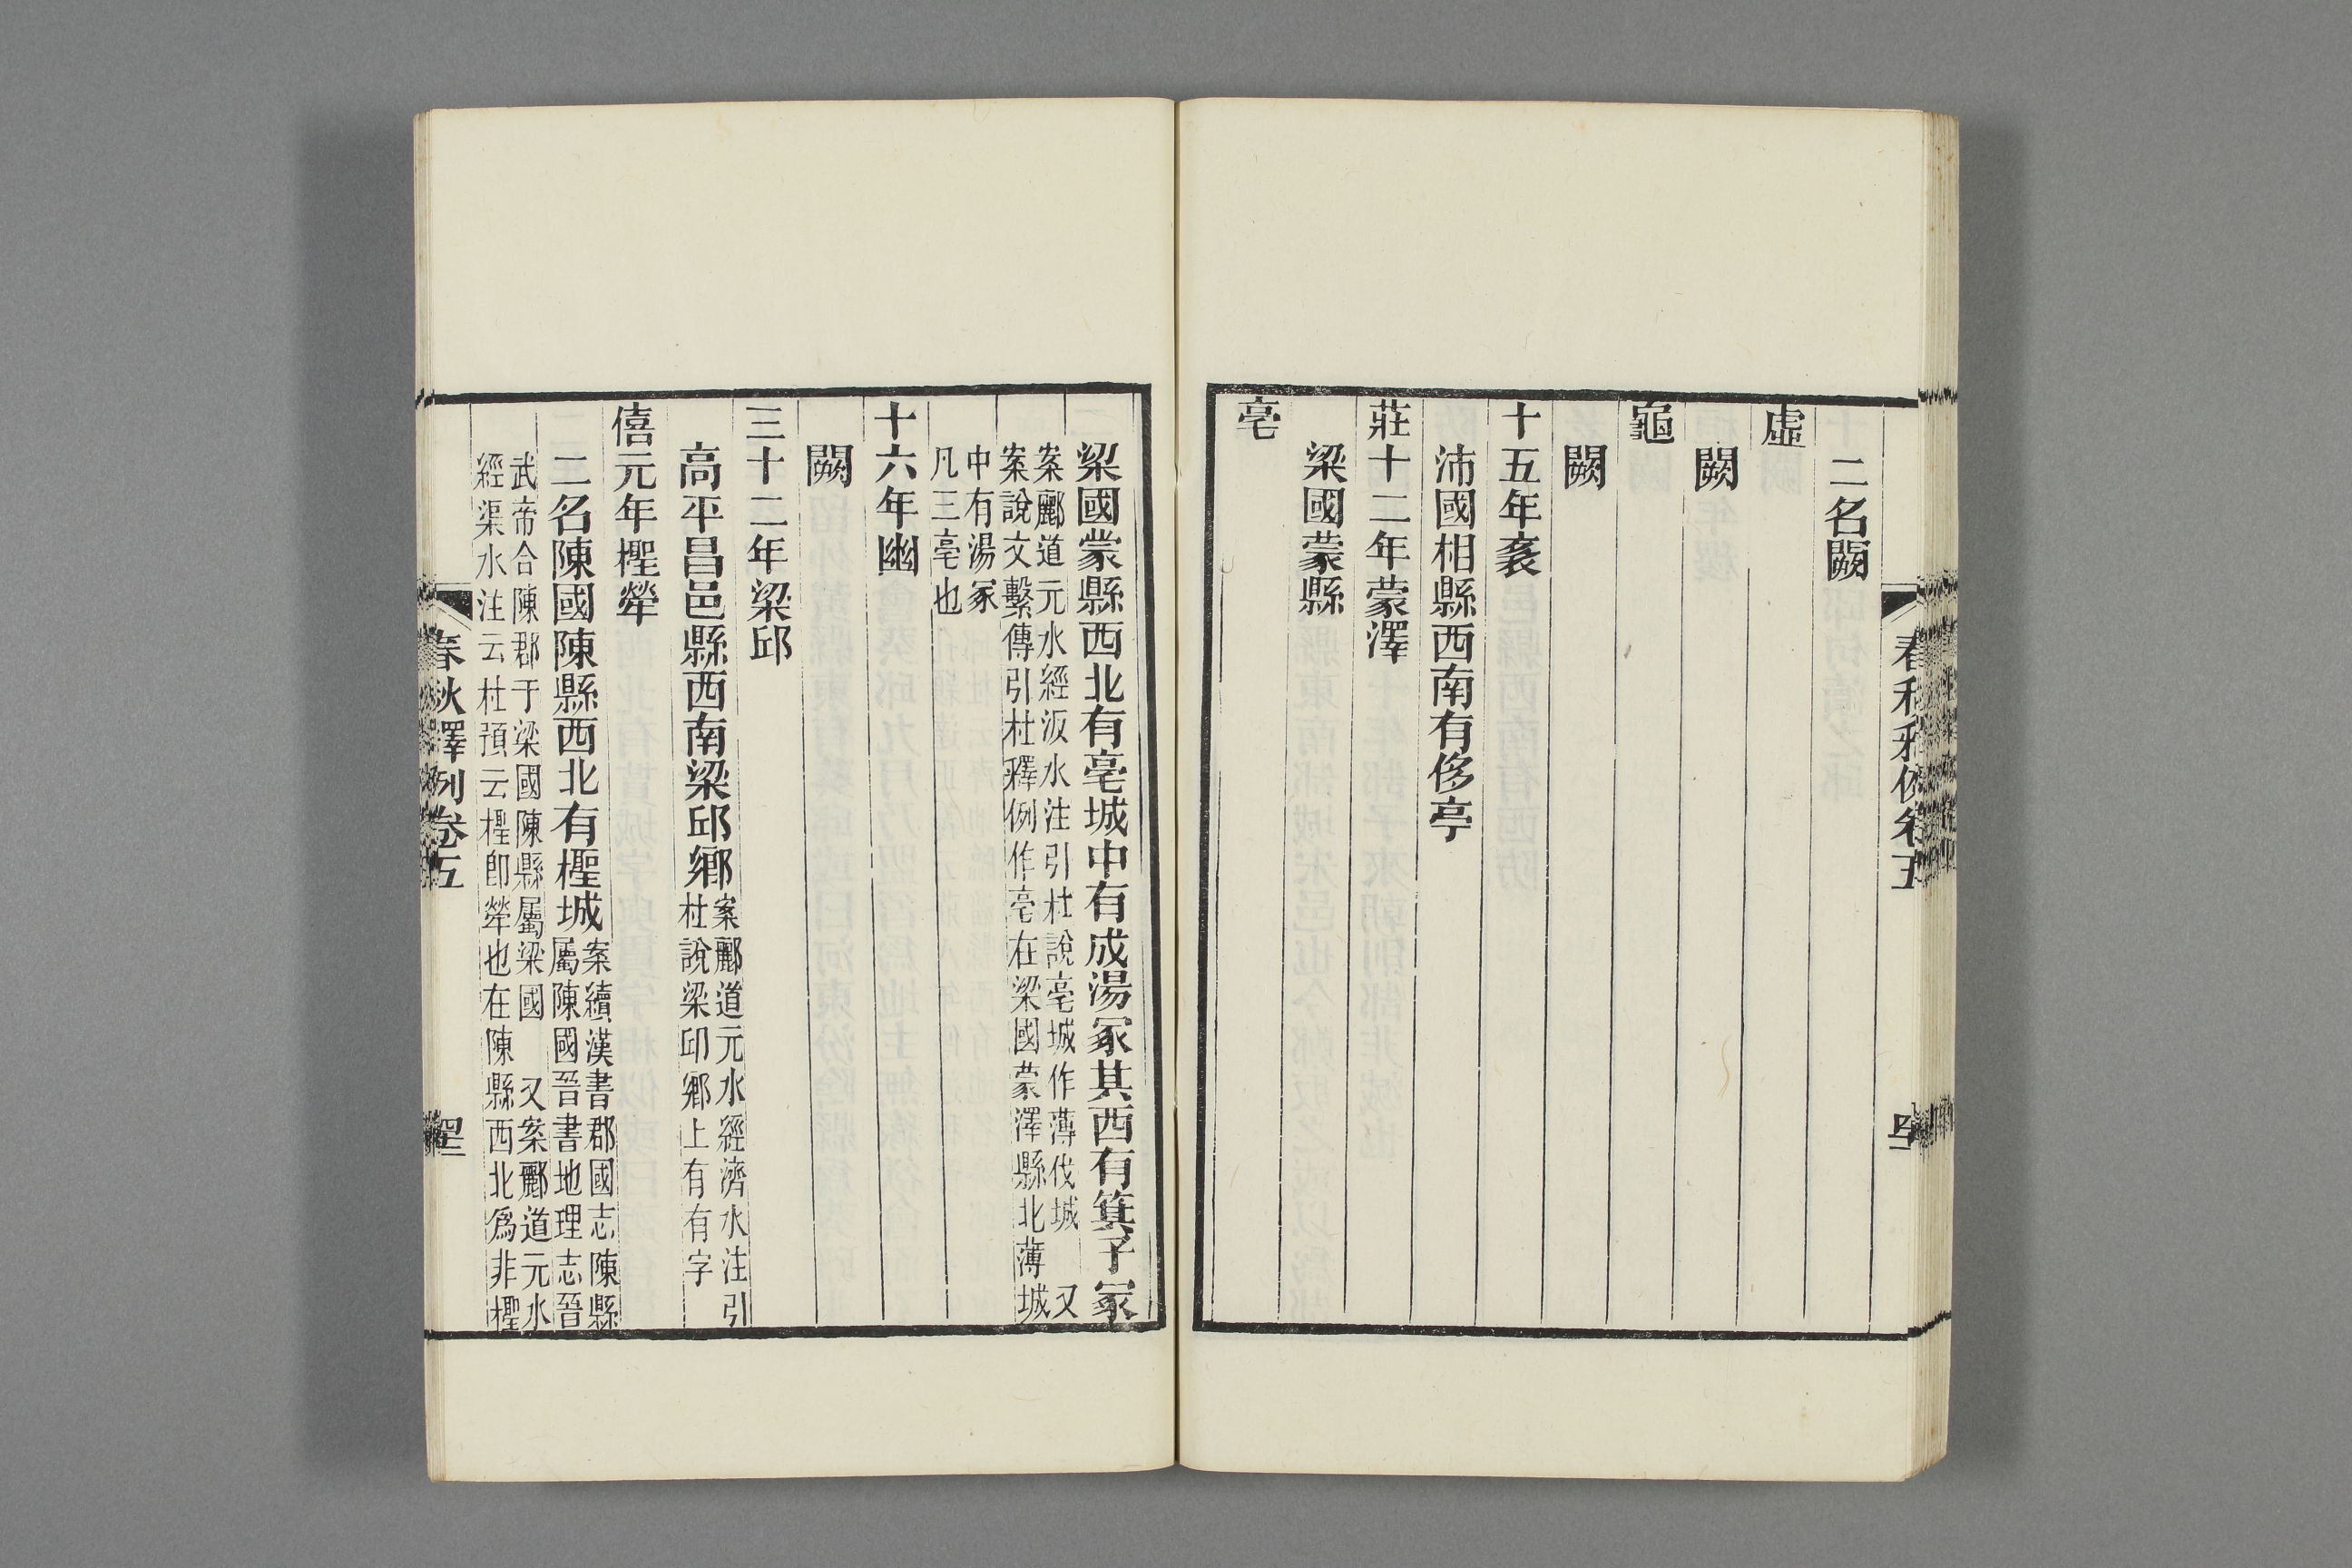 二名闕
虛
闕
龜
闕
十五年袲
沛國相縣西南有侈亭
莊十二年蒙澤
梁國蒙縣
亳
梁國蒙縣西北有亳城中有成湯冢其西有箕子冢
案酈道元水經汳水注引杜說亳城作薄伐城 又
案說文繫傳引杜釋例作亳在梁國蒙澤縣北薄城
中有湯冢
凡三亳也
十六年幽
闕
三十二年梁邱
高平昌邑縣西南梁邱鄉
案酈道元水經濟水注引
杜說梁邱鄉上有有字
僖元年檉犖
二名陳國陳縣西北有檉城
案續漢書郡國志陳縣
屬陳國晉書地理志晉
武帝合陳郡于梁國陳縣屬梁國 又案酈道元水
經渠水注云杜預云檉卽犖也在陳縣西北爲非檉
春秋釋例卷五